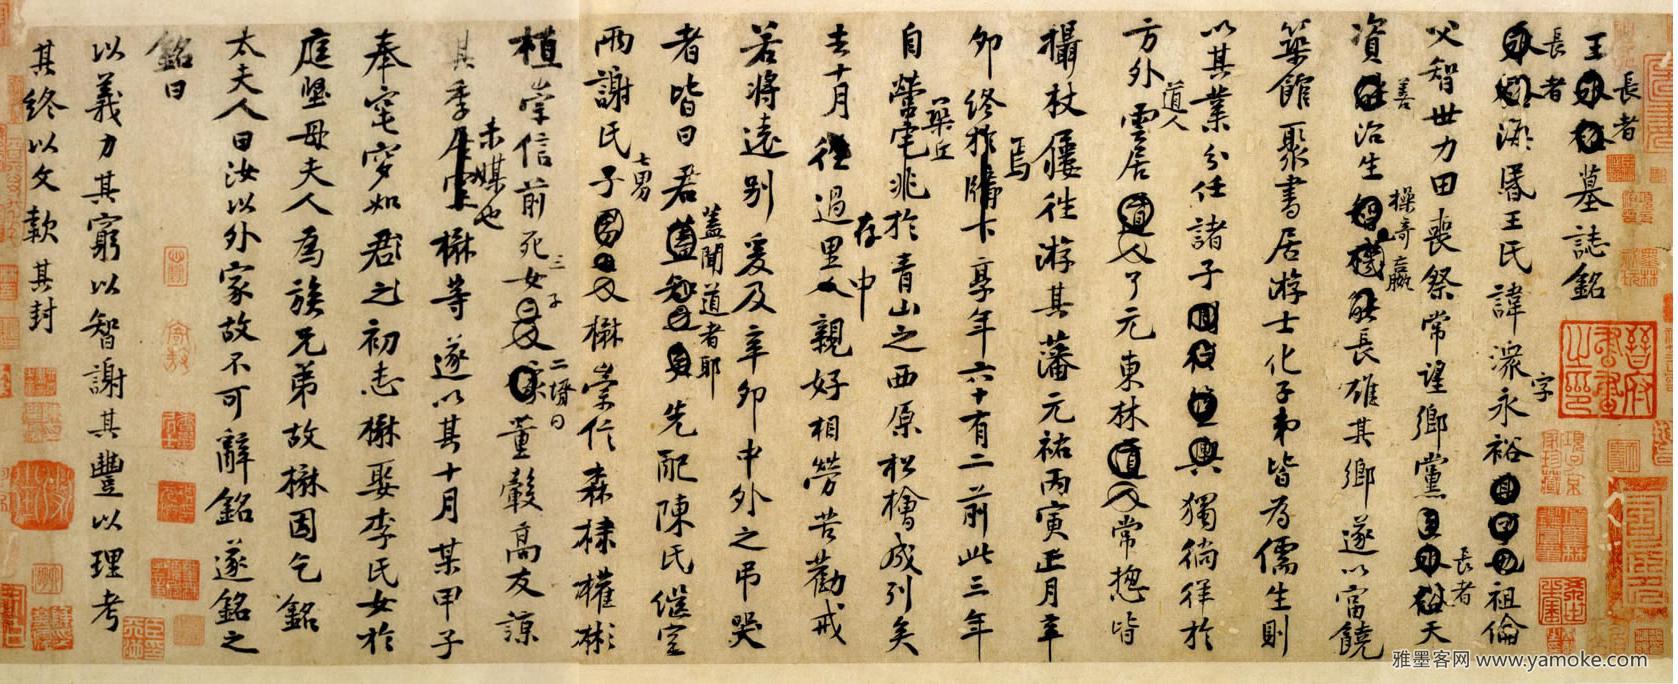 王長者墓誌銘
長者海昬王氏諱潨字永裕祖倫
父智世力田喪祭常望鄉黨長者天
資善治生操奇贏長雄其鄉遂以富饒
築館聚書居游士化子弟皆為儒生則
以其業分任諸子獨徜徉於
方外道人雲居了元東林常惣皆
攝杖屨往游其藩元祐丙寅正月辛
卯終焉享年六十有二前此三年
自營築丘宅兆於青山之西原松檜成列矣
去十月過存里中親好相勞苦勸戒
若將遠別爰及辛卯中外之弔哭
者皆曰君蓋聞道者耶先配陳氏繼室
兩謝氏七男子楙崇仁森棣權彬
植崇信前死女三子二壻曰董轂高友諒
其季未媒也楙等遂以其十月某甲子
奉窀穸如君之初志楙娶李氏女於
庭堅母夫人為族兄弟故楙因乞銘
太夫人曰汝以外家故不可辭銘遂銘之
銘曰
以義力其窮以智謝其豐以理考
其終以文款其封
晉府書畫之印
雅墨客网 www.yamoke.com